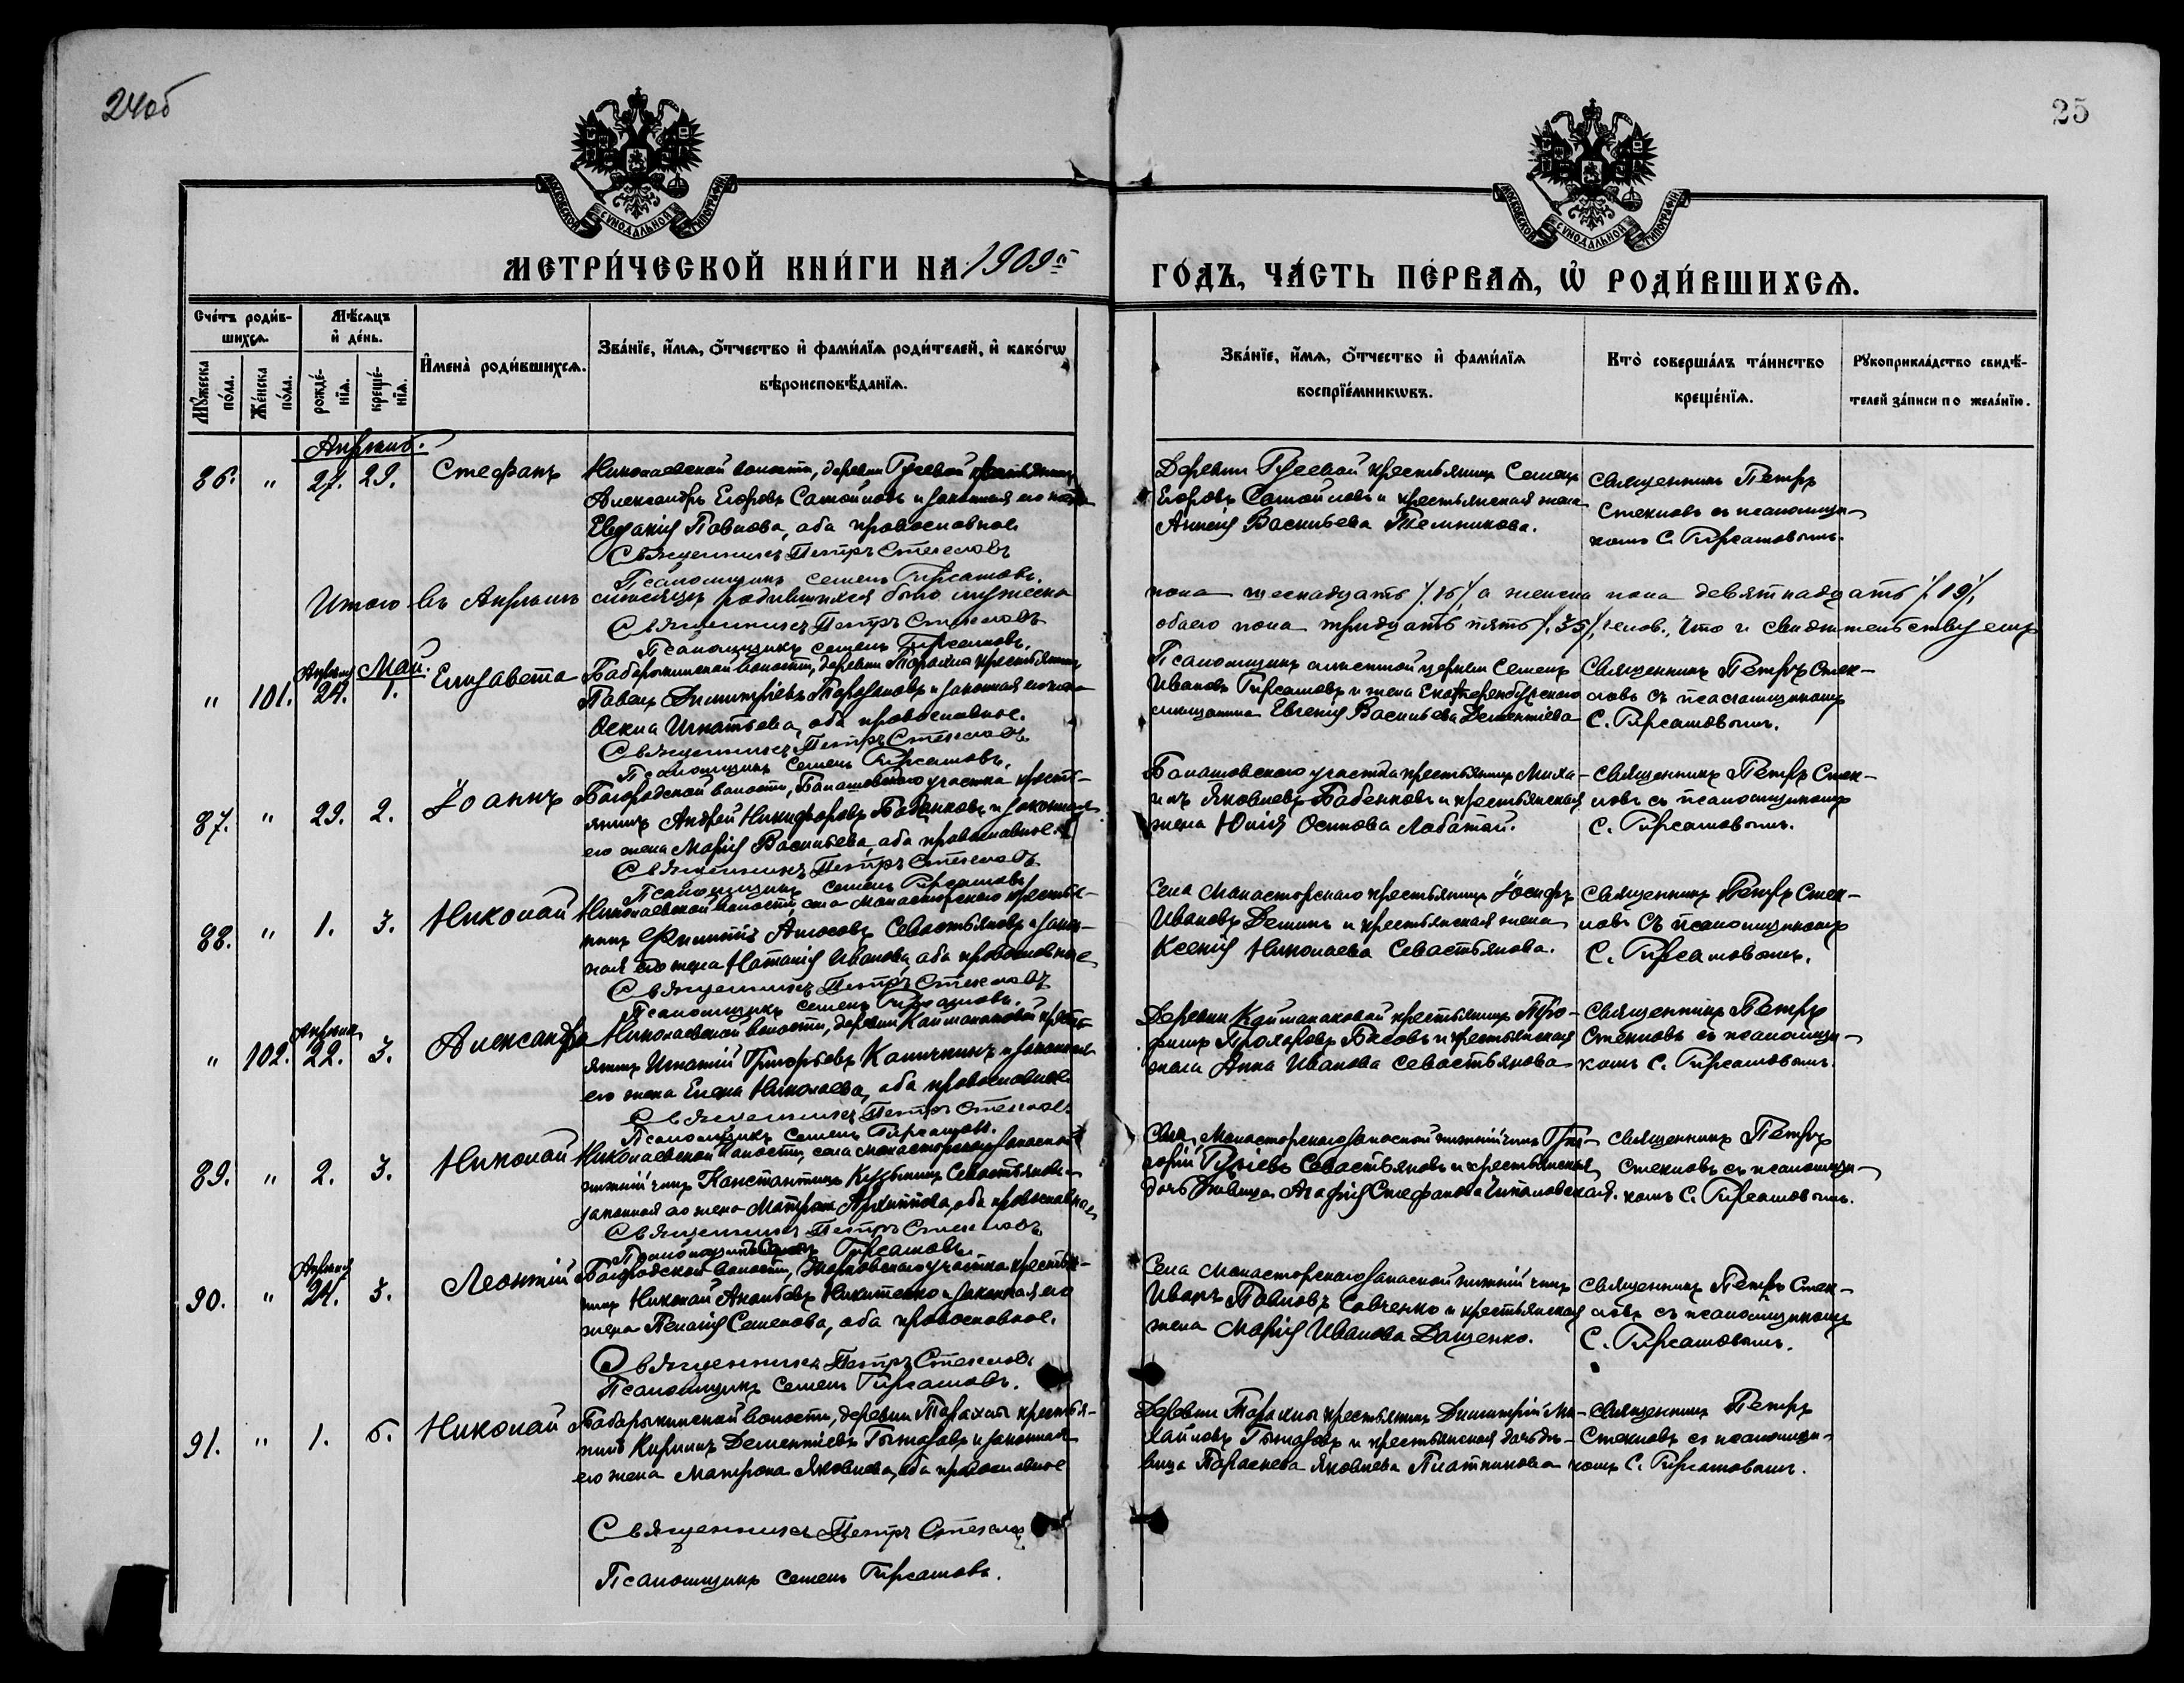 24об
25
МОСКОВСКОЙ СѴНОДАЛЬНОЙ ТИПОГРАФІИ
МОСКОВСКОЙ СѴНОДАЛЬНОЙ ТИПОГРАФІИ
МЕТРИ́ЧЕСКОЙ КНИ́ГИ НА 1909й
ГО́ДЪ, ЧА́СТЬ ПЕ́РВАѦ, Ѡ҆ РОДИ́ВШИХСѦ.
Сче́тъ роди́в-
шихсѧ.
Мѣ́сѧцъ
и҆ де́нь.
Мꙋ́жеска по́ла.
Же́нска по́ла.
рожде́-
нїѧ.
креще́-
нїѧ.
И҆мена̀ роди́вшихсѧ.
Зва́нїе, и҆́мѧ, ѻ҆́тчество и҆ фами́лїѧ роди́телей, и҆ како́гѡ
вѣроисповѣ́данїѧ.
Зва́нїе, и҆́мѧ, ѻ҆́тчество и҆ фами́лїѧ
воспрїе́мникѡвъ.
Кто̀ соверша́лъ та́инство
креще́нїѧ.
Рꙋкоприкла́дство свидѣ́-
телей за́писи по жела́нїю.
Апрѣль.
86. " 27. 29. Стефанъ
Николаевской волости, деревни Гусевой крестьянинъ
Александръ Егоровъ Самойловъ и законная его жена
Евдокія Павлова, оба православные.
Священникъ Петръ Стекловъ
Псаломщикъ Семенъ Гирсамовъ.
Деревни Гусевой крестьянинъ Семенъ
Егоровъ Самойловъ и крестьянская жена
Васильева Темникова.
Священникъ Петръ
Стекловъ съ псаломщи-
комъ С. Гирсамовымъ.
Итого въ Апрѣлѣ мѣсяцѣ родившихся было мужеска
пола шеснадцать /.16/, а женска пола девятнадцать /.19/,
обаего пола тридцать пять /.35/, челов., что и свидѣтельствуемъ
Священникъ Петръ Стекловъ
Псаломщикъ Семенъ Гирсамовъ.
Апрѣля Май.
" 101. 24. 1. Елизавета
Бабарыкинской волости, деревни крестьянинъ
Павелъ Димитріевъ и законная его жена
Игнатьева, оба православные.
Священникъ Петръ Стекловъ
Псаломщикъ Семенъ Гирсамовъ.
Псаломщикъ мѣстной церкви Семенъ
Ивановъ Гирсамовъ и жена Екатеренбургскаго
мѣщанина Евгенія Васильева Дементіева
Священникъ Петръ Стек-
ловъ съ псаломщикомъ
С. Гирсамовымъ.
87. " 29. 2. Іоаннъ
Богородской волости, Балашовского участка кресть-
янинъ Андрей Никифоровъ Бабенковъ и законная
его жена Марія Васильева, оба православные.
Священникъ Петръ Стекловъ
Псаломщикъ Семенъ Гирсамовъ
Балашовского участка крестьянинъ Миха-
илъ Яковлевъ Бабенковъ и крестьянская
жена Юлія Осипова Лобатай.
Священникъ Петръ Стек-
ловъ съ псаломщикомъ
С. Гирсамовымъ.
88. " 1. 3. Николай
Николаевской волости, села Монасторского крестья-
нинъ Филиппъ Амосовъ Севастьяновъ и закон-
ная его жена Наталія Иванова, оба православные
Священникъ Петръ Стекловъ
Псаломщикъ Семенъ Гирсамовъ.
Села Монасторскаго крестьянинъ Іосифъ
Ивановъ Деминъ и крестьянская жена
Ксенія Николаева Севастьянова.
Священникъ Петръ Стек-
ловъ съ псаломщикомъ
С. Гирсамовымъ.
Апрѣля
" 102. 22. 3. Александра
Николаевской волости, деревни Кайманаковой кресть-
янинъ Игнатій Григорьевъ Каличкинъ и законная
его жена Елена Николаева, оба православные.
Священникъ Петръ Стекловъ
Псаломщикъ Семенъ Гирсамовъ.
Деревни Кайманаковой крестьянинъ Тро-
фимъ Прохоровъ Басовъ и крестьянская
жена Анна Иванова Севастьянова
Священникъ Петръ
Стекловъ съ псаломщи-
комъ С. Гирсамовымъ.
89. " 2. 3. Николай
Николаевской волости, села Монасторского запасной
нижній чинъ Константинъ Кузьминъ Севастьяновъ и
законная его жена Матрона Архипова, оба православные
Священникъ Петръ Стекловъ
Псаломщикъ Семенъ Гирсамовъ.
Села Монасторскаго запасной нижній чинъ Гри-
горій Гуріевъ Севастьяновъ и крестьянская
дочь дѣвица Агафія Стефанова
Священникъ Петръ
Стекловъ съ псаломщи-
комъ С. Гирсамовымъ.
Апрѣля
90. " 24. 3. Леонтій
Богородской волости, участка крестья-
нинъ Николай Никитенко и законная его
жена Пелагія Семенова, оба православные.
Священникъ Петръ Стекловъ
Псаломщикъ Семенъ Гирсамовъ.
Села Монасторскаго запасной нижній чинъ
Иванъ Павловъ Савченко и крестьянская
жена Марія Иванова Дащенко.
Священникъ Петръ Стек-
ловъ съ псаломщикомъ
С. Гирсамовымъ.
91. " 1. 6. Николай
Бабарыкинской волости, деревни крестья-
нинъ Кириллъ Дементіевъ и законная
его жена Матрона Яковлева, оба православные
Священникъ Петръ Стекловъ
Псаломщикъ Семенъ Гирсамовъ.
Деревни крестьянинъ Димитрій Ми-
хайловъ и крестьянская дочь дѣ-
вица Параскева Яковлева Платникова
Священникъ Петръ
Стекловъ съ псаломщи-
комъ С. Гирсамовымъ.